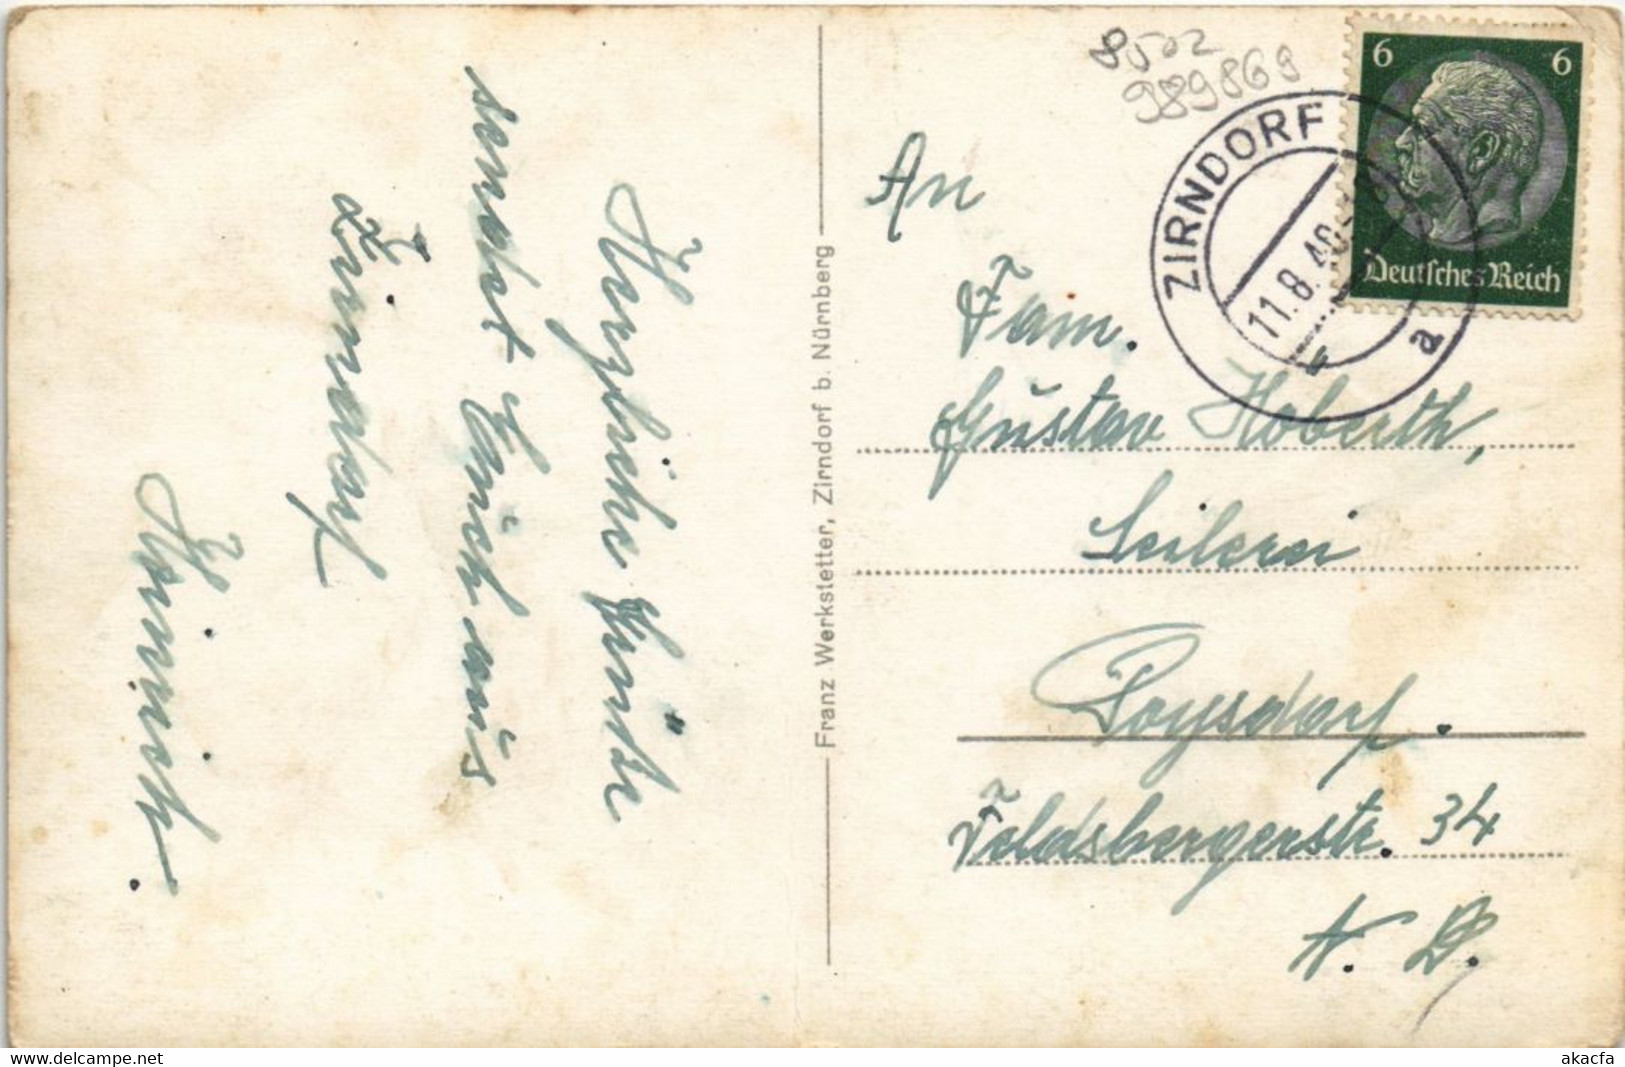 Herzliche Grüße
sendet Euch aus
Zirndorf
Heinrich.
Franz Werkstetter, Zirndorf b. Nürnberg
8502
989869
6 6
Deutsches Reich
ZIRNDORF
11.8.40
a
An
Fam.
Gustav Hoberth,
Seilerei
Poysdorf.
Feldsbergerstr. 34
N. D.
www.delcampe.net
akacfa